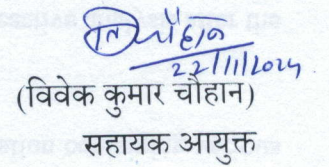 22/11/2024
(विवेक कुमार चौहान)
सहायक आयुक्त